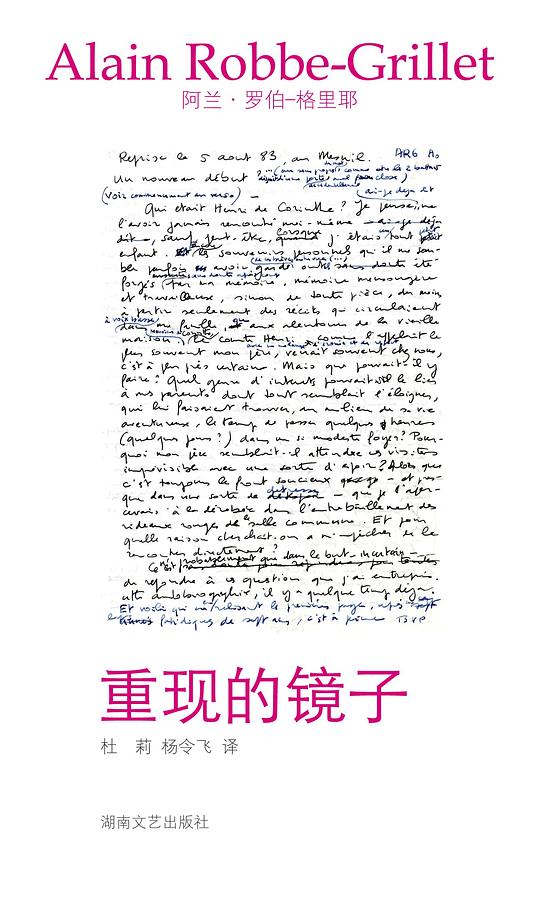 Alain Robbe-Grillet
阿兰·罗伯–格里耶
Reprise le 5 aout 83, au Mesnil.
ARG
Un nouveau début ?
(voir commencement au verso) —
ai-je déjà dit
Qui était Henri de Corinthe ? Je pense
l'avoir jamais rencontré moi-même
dit, sauf, peut-être, lorsque j'étais tout petit
enfant. les souvenirs personnels qui il me
parfois avoir gardé
forgés par ma mémoire, mémoire mensongère
et travailleuse, sinon de toute pièce, du moins
à partir seulement des récits qui circulaient
à voix basse
dans ma famille aux alentours de la vieille
maison. comte Henri, comme l'appelait le
plus souvent mon père, venait souvent chez nous,
c'est à peu près certain. Mais que pouvait-il y
faire ? Quel genre d'intérêts pouvait le lier
à mes parents dont tout semblait l'éloigner,
qui lui faisaient trouver, au milieu de sa vie
aventureuse, le temps de passer quelques heures
(quelques jours ?) dans un si modeste foyer ? Pour-
quoi mon père semblait-il attendre ces visites
imprévisibles avec une sorte d'espoir ?
c'est toujours le front soucieux
que dans une sorte de détresse — que je l'aper-
cevais à la dérobée dans l'entrebâillement des
rideaux rouges de salle commune. Et pour
quelle raison cherchait-on à m'empêcher de le
rencontrer directement ?
C'est probablement que dans le but incertain
de répondre à ces question que j'ai entrepris
cette autobiographie, il y a quelque temps déjà.
Et voilà qu'en relisant les premières pages, après
de sept ans, c'est à peine TSVP
重现的镜子
杜 莉 杨令飞 译
湖南文艺出版社